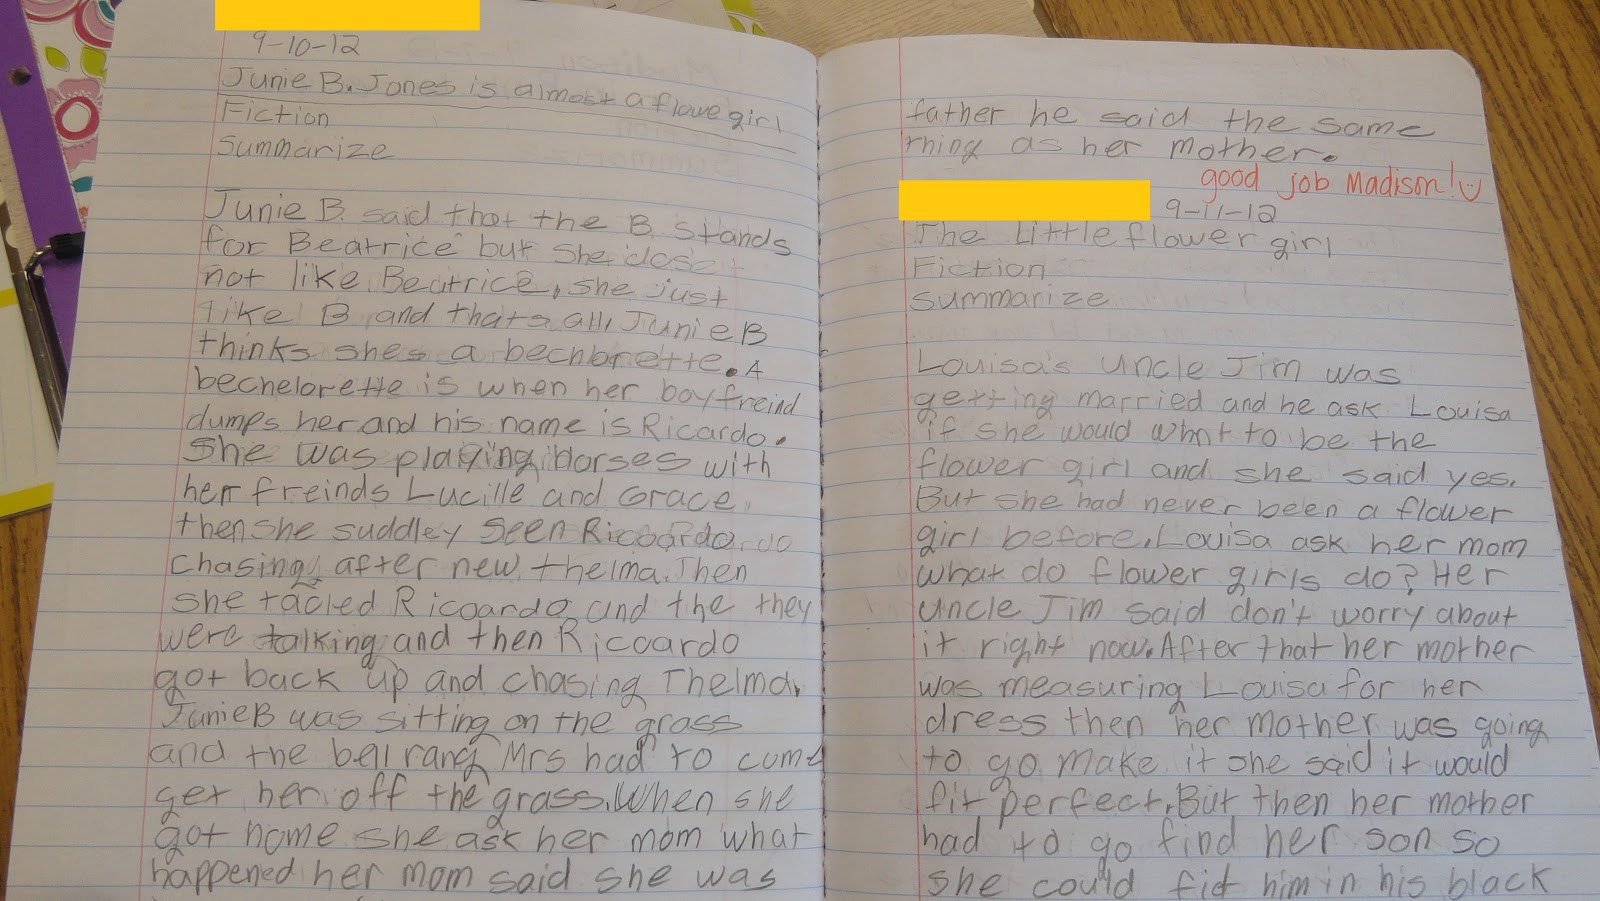 9-10-12
Junie B. Jones is almost a flowe girl
Fiction
Summarize
Junie B. said that the B. stands
for Beatrice but she dose
not like Beatrice, she just
like B and thats all, Junie B
thinks shes a bechlorette. A
bechelorette is when her boyfreind
dumps her and his name is Ricardo.
She was playing horses with
her freinds Lucille and Grace.
then she suddley seen Ricoardo
chasing after new thelma. Then
she tacled Ricoardo and the they
were talking and then Ricoardo
got back up and chasing Thelma.
Junie B was sitting on the grass
and the bell rang Mrs had to come
get her off the grass. When she
got home she ask her mom what
happened her mom said she was
father he said the same
thing as her mother.
good job Madison!
9-11-12
The Little flower girl
Fiction
Summarize
Louisa's uncle Jim was
getting married and he ask Louisa
if she would whnt to be the
flower girl and she said yes.
But she had never been a flower
girl before, Louisa ask her mom
what do flower girls do? Her
uncle Jim said don't worry about
it right now. After that her mother
was measuring Louisa for her
dress then her mother was going
to go make it she said it would
fit perfect. But then her mother
had to go find her son so
she could fidt him in his black